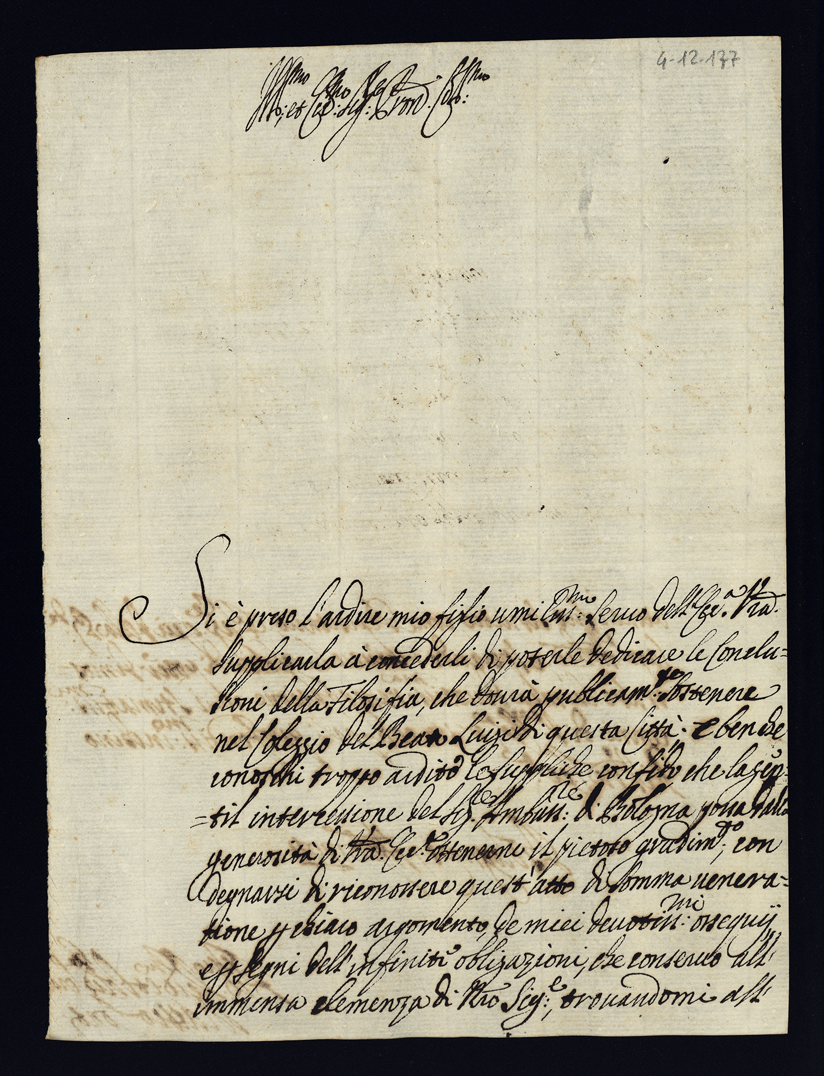 4-12-137
Ill:mo, et Ecc:mo Sig:re Pron: Col:mo
Si è preso l'ardire mio figlio umiliss:mo Servo dell'Ecc.a V'ra
supplicarla à concederli di poterle dedicare le Conclu=
sioni della Filosofia, che dourà publicam:te sostenere
nel Collegio del Beato Luigi di questa Città. E ben che
conoschi troppo ardito le suppliche confido che la gen=
=til intercessione del Sig:re Ambass:re di Bologna possa dalla
generosità di V'ra Ecc:a ottenerne il pietoso gradim:to, con
degnarsi di riconoscere quest'atto di somma venera=
tione p chiaro argomento de miei devotiss:mi ossequij,
e p segni dell'infinite obligazioni, che conservo all'
immensa clemenza di N'ro Sig:e, trouandomi all'